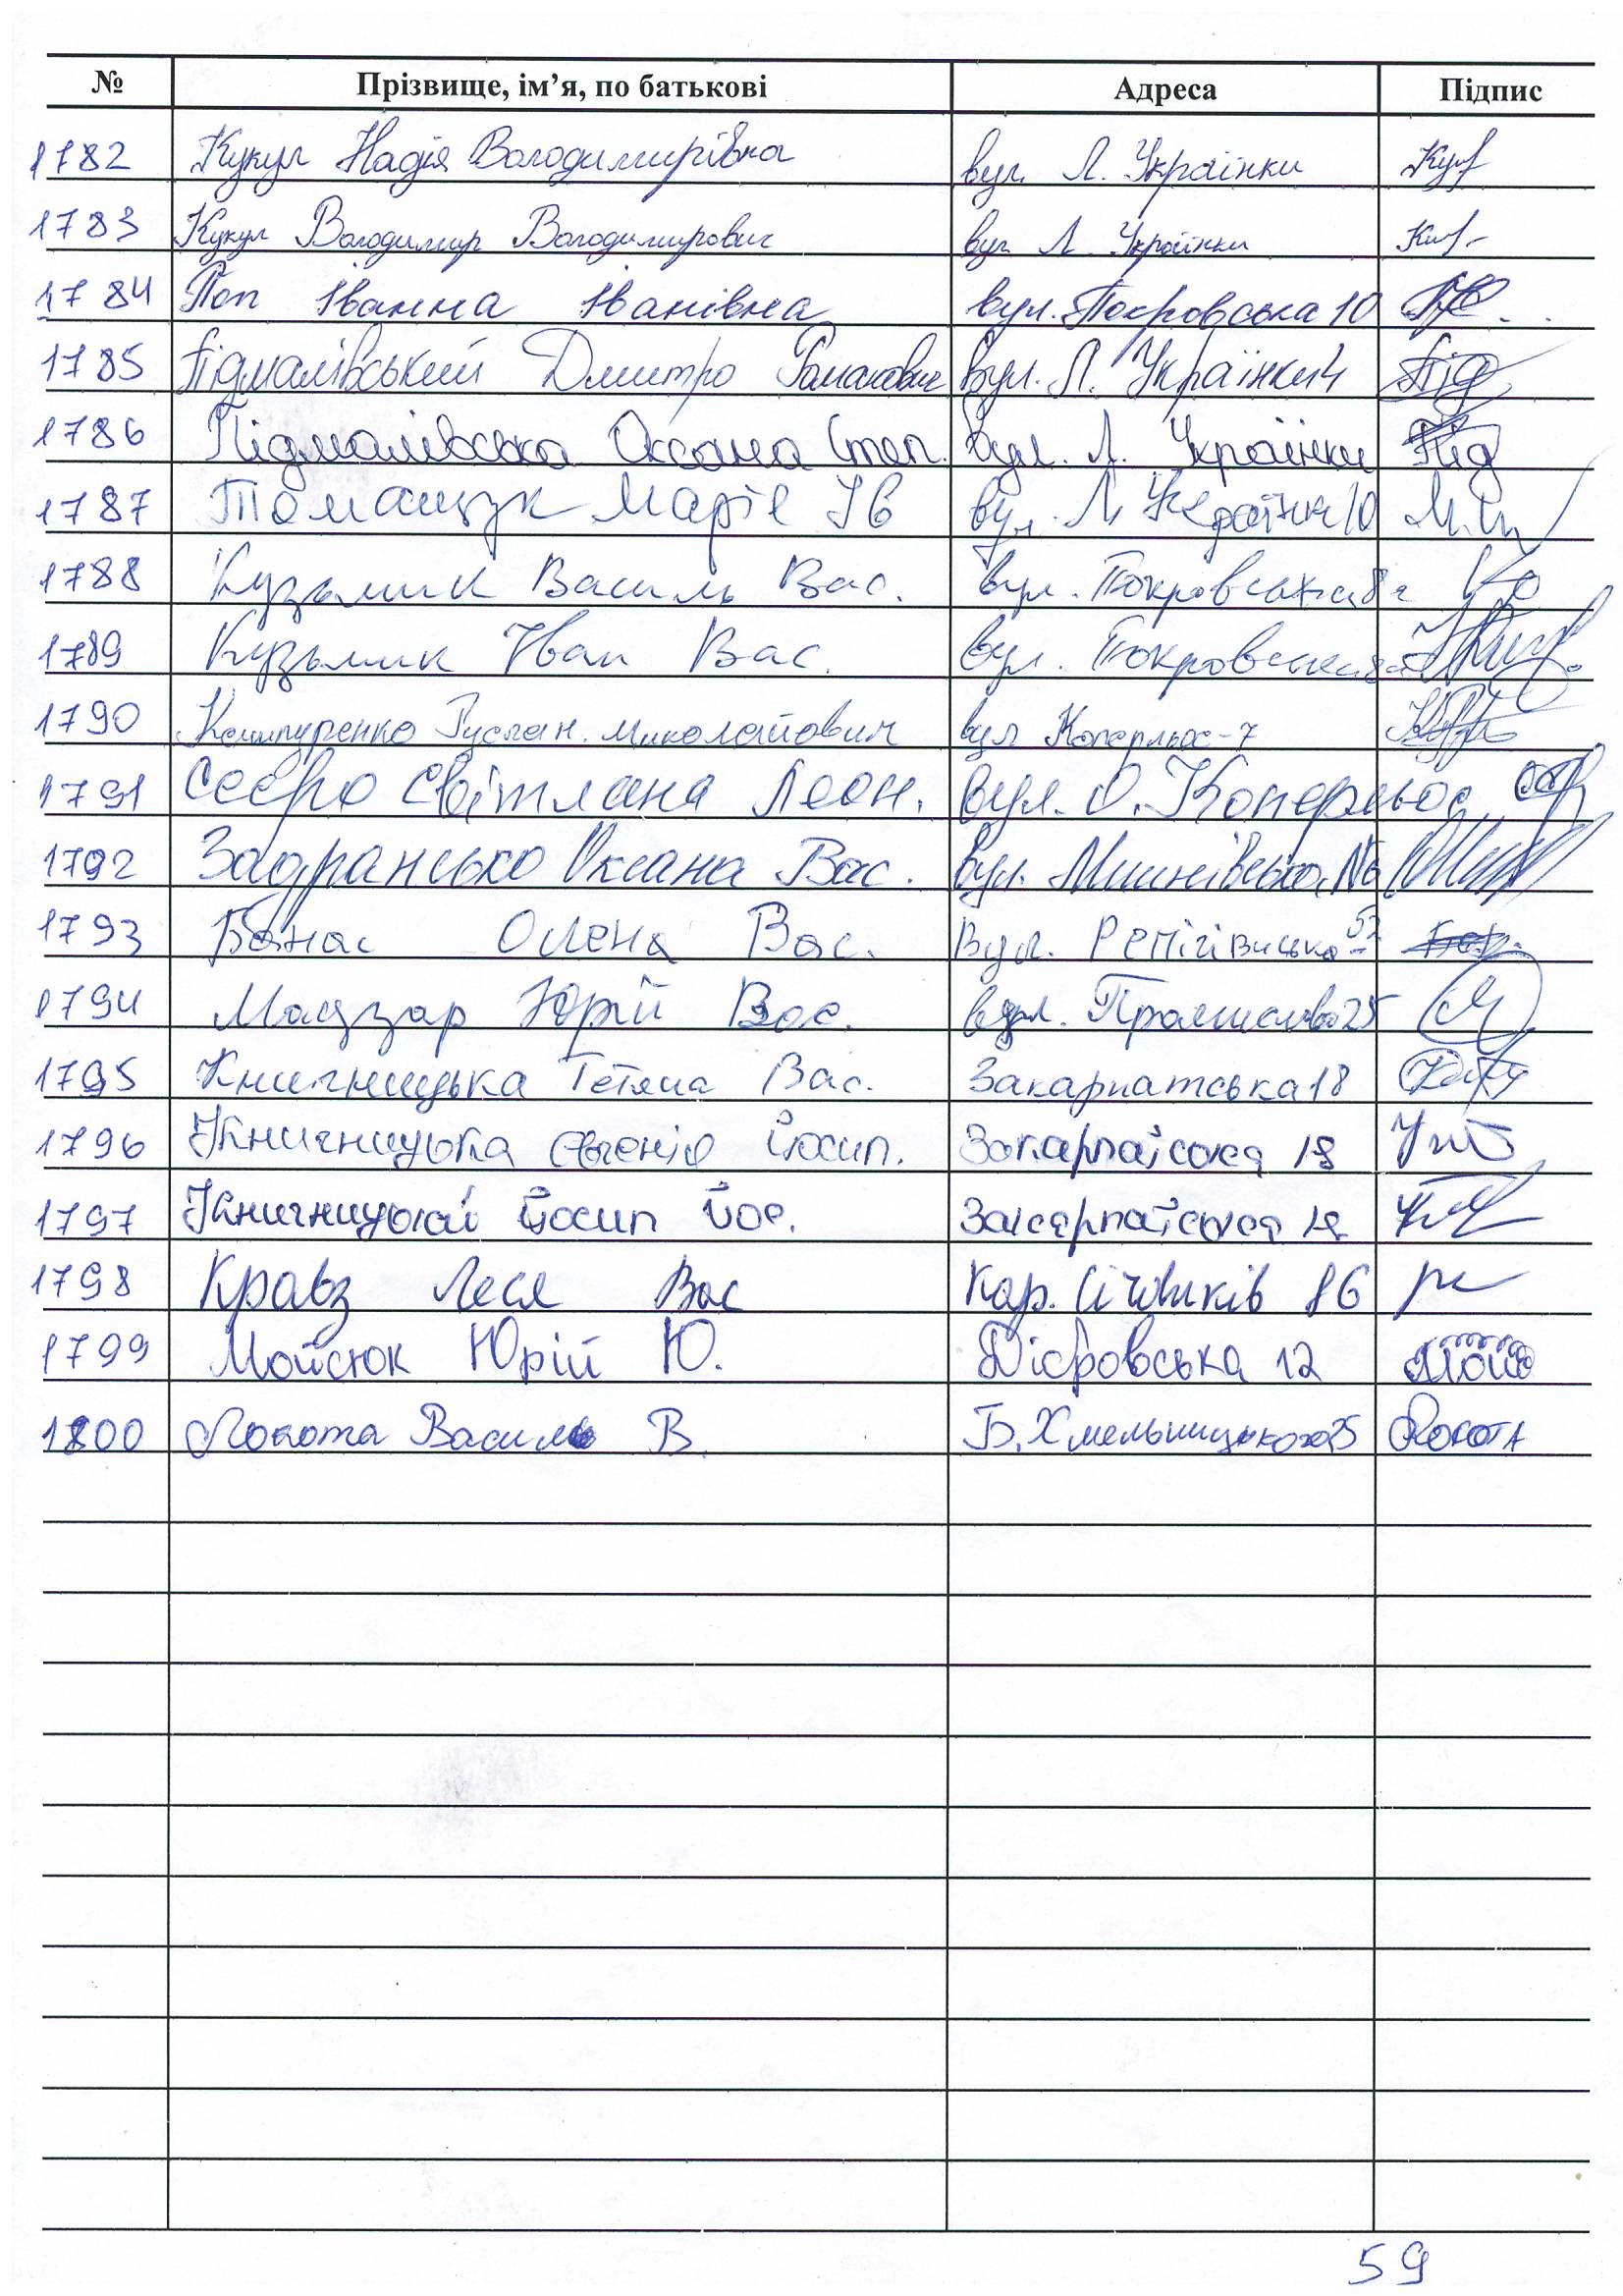 № Прізвище, ім’я, по батькові Адреса Підпис
1782 Кукул Надія Володимирівна вул. Л. Українки
1783 Кукул Володимир Володимирович вул Л. Українки
1784 Поп Іванна Іванівна вул. Покровська 10
1785 Підмалівський Дмитро Романович вул. Л. Українки 4 Під
1786 Підмалівська Оксана Степ. вул. Л. Українки Під
1787 Томащук Марія Ів вул. Л Українки 10
1788 Кузьмик Василь Вас. вул. Покровська 8
1789 Кузьмик Іван Вас. вул. Покровська
1790 Руслан Миколайович вул
1791 Світлана Леон. вул. О.
1792 Оксана Вас. вул.
1793 Банас Олена Вас. Вул.
1794 Мадзар Юрій Вас. вул. 25
1795 Книгницька Тетяна Вас. Закарпатська 18
1796 Книгницька Євгенія Йосип. Закарпатська 18
1797 Книгницький Йосип Йос. Закарпатська 18
1798 Кравз Леся Вас Кар. Січовиків 86
1799 Мойсюк Юрій Ю. 12
1800 Локота Василь В. Б. Хмельницького 25 Локота
59